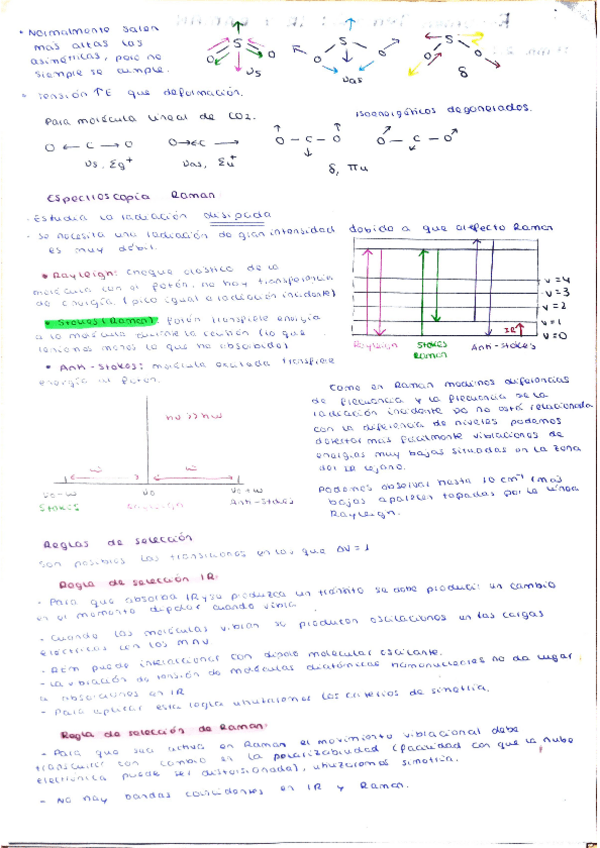 • Normalmente salen
más altas las
asimétricas, pero no
siempre se cumple.
S
O O
νs
S
O O
νas
S
O O
δ
• Tensión ↑E que deformación.
Para molécula lineal de CO2.
isoenergéticos degenerados.
O ← C → O
νs, Σg+
O→ ←C → O
νas, Σu+
O - C - O
O - C - O
δ, πu
Espectroscopía Raman.
- Estudia la radiación disipada
- Se necesita una radiación de gran intensidad debido a que el efecto Raman
es muy débil.
• Rayleigh: choque elástico de la
molécula con el fotón, no hay transferencia
de energía. (pico igual a radiación incidente)
• Stokes (Raman): fotón transfiere energía
a la molécula durante la colisión (lo que
tenemos menos lo que ha absorbido)
• Anti-stokes: molécula excitada transfiere
energía al fotón.
v=4
v=3
v=2
v=1
v=0
IR
Rayleigh
Stokes
Raman
Anti-stokes
ω
ω
ν0-ω
ν0
ν0+ω
Stokes
Rayleigh
Anti-Stokes
Como en Raman medimos diferencias
de frecuencia y la frecuencia de la
radiación incidente ν0 no está relacionada
con la diferencia de niveles podemos
detectar más fácilmente vibraciones de
energías muy bajas situadas en la zona
del IR lejano.
Podemos observar hasta 10 cm-1 (más
bajas aparecen tapadas por la línea
Rayleigh.
Reglas de selección
Son posibles las transiciones en las que Δv=1
Regla de selección IR:
- Para que absorba IR y se produzca un tránsito se debe producir un cambio
en el momento dipolar cuando vibra.
- Cuando las moléculas vibran se producen oscilaciones en las cargas
eléctricas con los MNV
- REM puede interaccionar con dipolo molecular oscilante.
- La vibración de tensión de moléculas diatómicas homonucleares no da lugar
a absorciones en IR
- Para aplicar esta regla utilizaremos los criterios de simetría.
Regla de selección de Raman:
- Para que sea activa en Raman el movimiento vibracional debe
transcurrir con cambio en la polarizabilidad (facilidad con que la nube
electrónica puede ser distorsionada), utilizaremos simetría.
- No hay bandas coincidentes en IR y Raman.